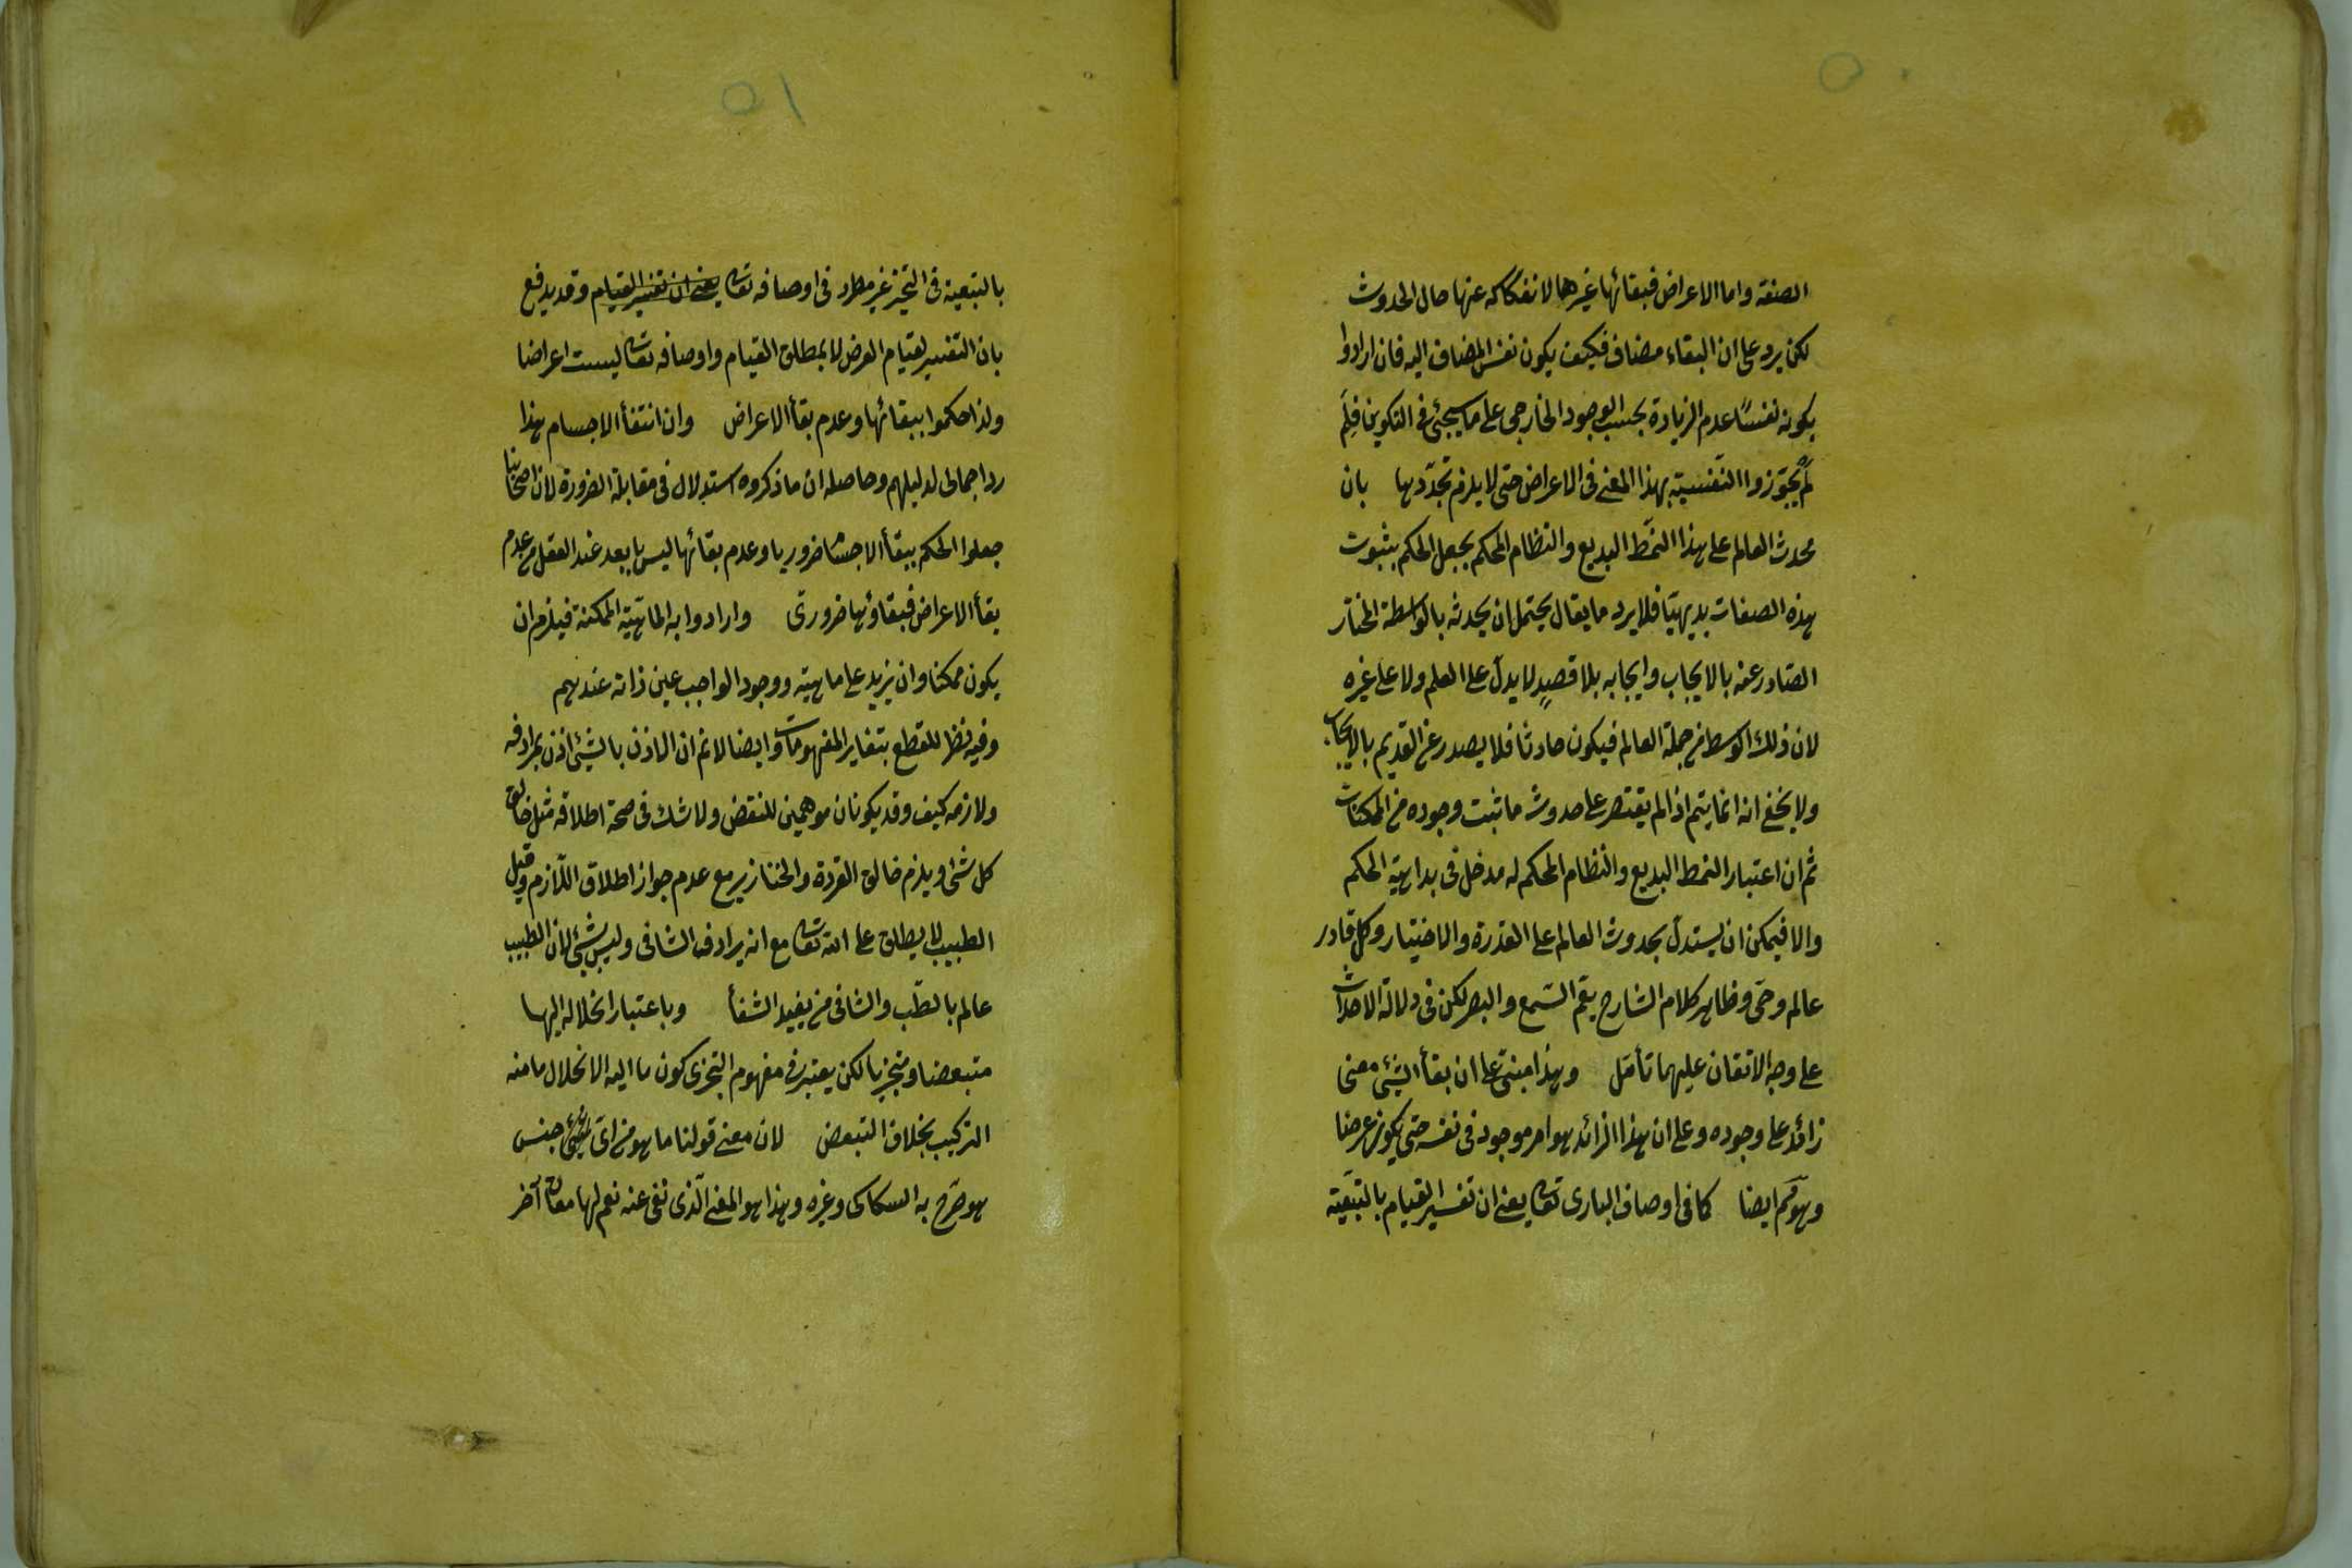 الصفة واما الاعراض فبقائها غيرها لانفكاكه عنها حال الحدوث
لكن يرد على ان البقاء مضاف فكيف يكون نفس المضاف اليه فان ارادوا
بكونه نفسًا عدم الزيادة بحسب الوجود الخارجى على ما سيجئ فى التكوين فلِمَ
لَمْ يجوّزوا النفسيّة بهذا المعنى فى الاعراض حتى لا يلزم تجدّدها بان
محدث العالم على هذا النمط البديع والنظام المحكم يجعل الحكم بثبوت
هذه الصفات بديهيّا فلا يرد ما يقال يحتمل ان يحدثه بالواسطة المختار
الصّادر عنه بالايجاب وايجابه بلا قصدٍ لا يدلّ على العلم ولا على غيره
لان ذلك الوسط من جملة العالم فيكون حادثا فلا يصدر عن القديم بالايجاب
ولا يخفى انه انما يتم اذا لم يقتصر على حدوث ما ثبت وجوده من الممكنات
ثم ان اعتبار النمط البديع والنظام المحكم له مدخل فى بداهيّة الحكم
والا فيمكن ان يستدلّ بحدوث العالم على القدرة والاختيار وكل قادر
عالم وحىّ وظاهر كلام الشارح يعمّ السّمع والبصر لكن فى دلالة الاحداث
على وجه الاتقان عليهما تأمّل وهذا مبنىّ على ان بقأ الشّئ معنى
زائد على وجوده وعلى ان هذا الزائد هو امر موجود فى نفسه حتى يكون عرضا
وهو مم ايضا كما فى اوصاف البارى تعالى يعنى ان تفسير القيام بالتبعيّة
٥١
بالتبعية فى التحيّز غير مطرد فى اوصافه تعالى يعنى ان تفسير القيام وقد يدفع
بان التفسير لقيام العرض لا بمطلق القيام واوصافه تعالى ليست اعراضا
ولذا حكموا ببقائها وعدم بقأ الاعراض وان انتفأ الاجسام هذا
رد اجمالى لدليلهم وحاصله ان ما ذكروه استدلال فى مقابلة الضرورة لان اصحابنا
جعلوا الحكم ببقأ الاجسام ضروريا وعدم بقائها ليس بابعد عند العقل من عدم
بقأ الاعراض فبقاؤها ضرورىّ وارادوا به الماهيّة الممكنة فيلزم ان
يكون ممكنا وان يزيد على ماهيته ووجود الواجب عين ذاته عندهم
وفيه نظر للقطع بتغاير المفهومات وايضا لا نم ان الاذن بالشّئ اذن بمرادفه
ولازمه كيف وقد يكونان موهمين للنقض ولا شك فى صحة اطلاقه مثل خالق
كل شئ ويلزم خالق القردة والخنازير مع عدم جواز اطلاق اللّازم وقيل
الطبيب لا يطلق على الله تعالى مع انه يرادف الشافى وليس بشئ لان الطبيب
عالم بالطّب والشافى من يفيد الشفأ وباعتبار انحلاله اليها
متبعضا ومتجزيا لكن يعتبر فى مفهوم التجزى كون ما اليه الانحلال ما منه
التركيب بخلاف التبعض لان معنى قولنا ما هو من اىّ جنس
هو صرّح به السكاكى وغيره وهذا هو المعنى الّذى نفى عنه نعم لها معان آخر